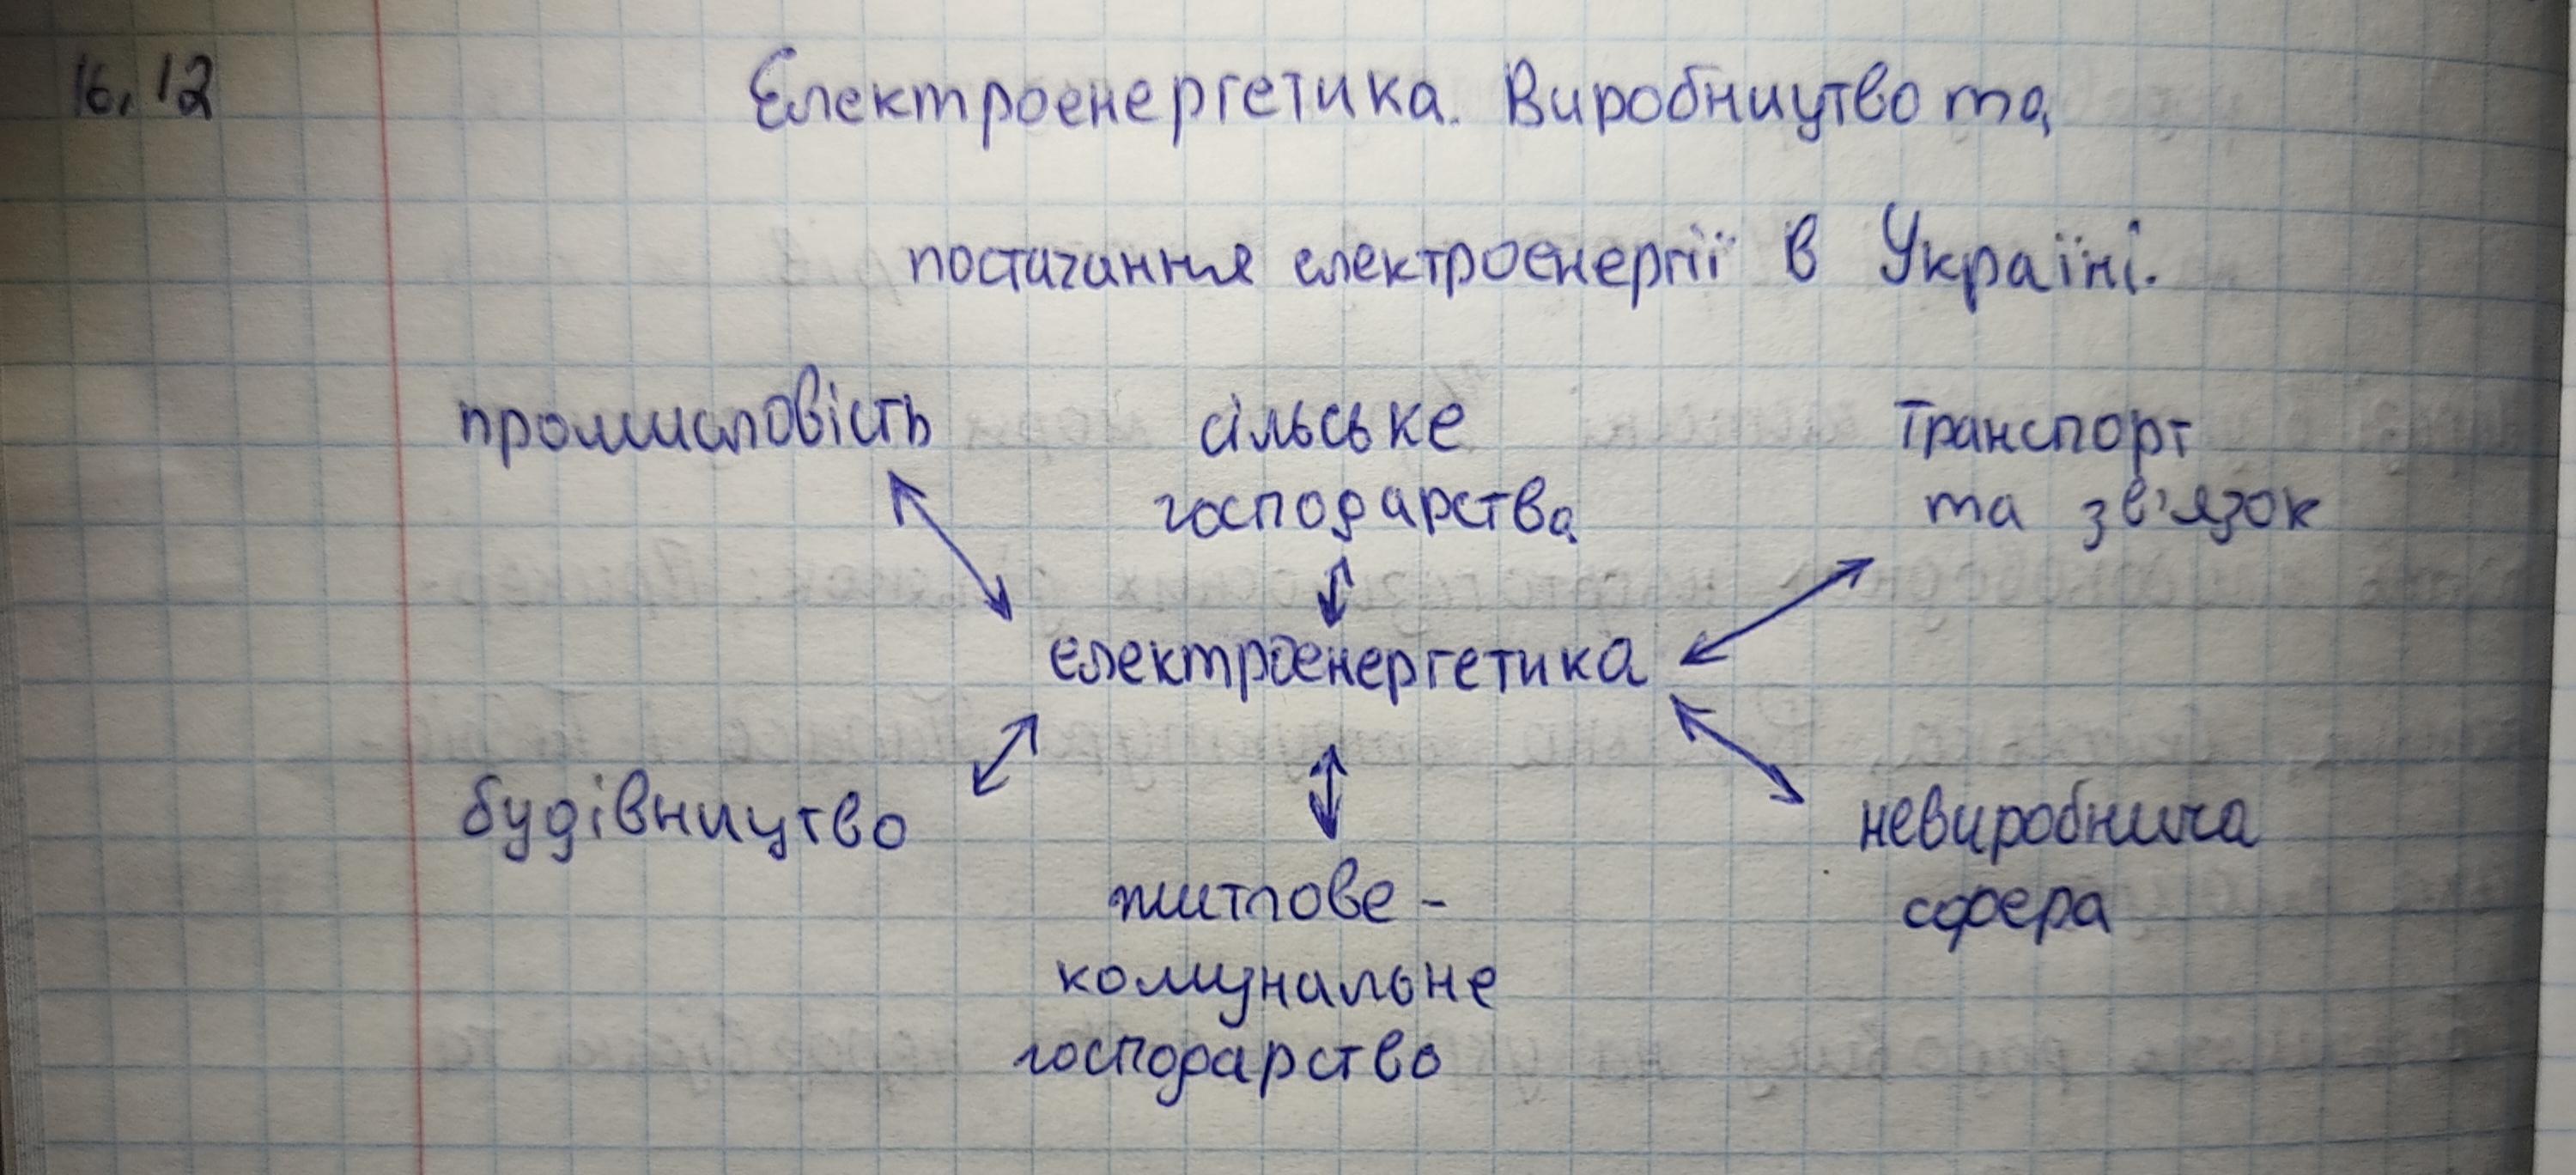 16.12
Електроенергетика. Виробництво та
постачання електроенергії в Україні.
промисловість
сільське
господарство
Транспорт
та зв'язок
електроенергетика
будівництво
житлове-
комунальне
господарство
невиробнича
сфера